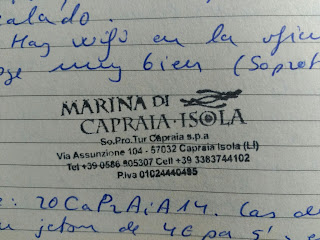 calado.
Hay wifi en la ofici
muy bien (Sopret
MARINA DI
CAPRAIA·ISOLA
So.Pro.Tur Capraia s.p.a
Via Assunzione 104 - 57032 Capraia Isola (LI)
Tel +39 0586 905307 Cell +39 3383744102
P.iva 01024440495
e: 20CaPRAiA14. Las de
un jeton de 4€ pa 5'